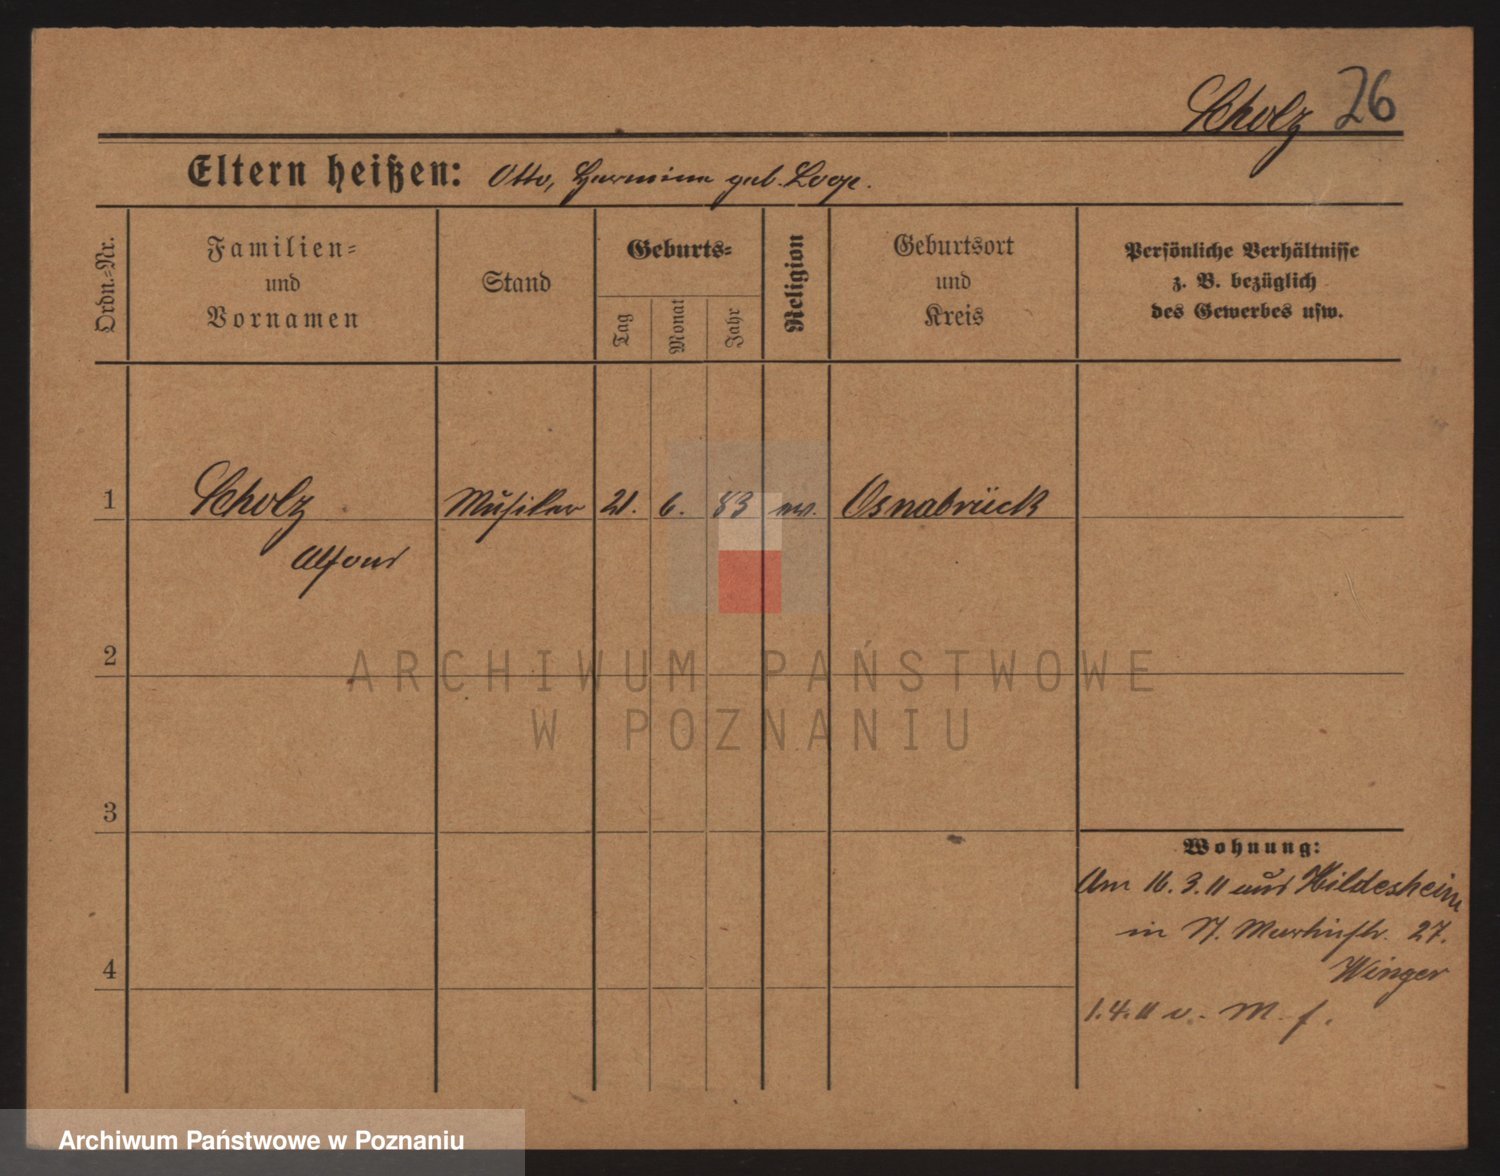 Scholz 26
Eltern heißen: Otto, Hermine geb. Loope.
Ordn.-Nr.
Familien-
und
Vornamen
Stand
Geburts-
Tag
Monat
Jahr
Religion
Geburtsort
und
Kreis
Persönliche Verhältnisse
z. B. bezüglich
des Gewerbes usw.
1 Scholz Musiker 21. 6. 83 ev. Osnabrück
Alfons
2
ARCHIWUM PAŃSTWOWE
W POZNANIU
3
Wohnung:
Am 16.3.11 aus Hildesheim
in St. Martinstr. 27.
4
Winger
1.4.11 v. M. f.
Archiwum Państwowe w Poznaniu